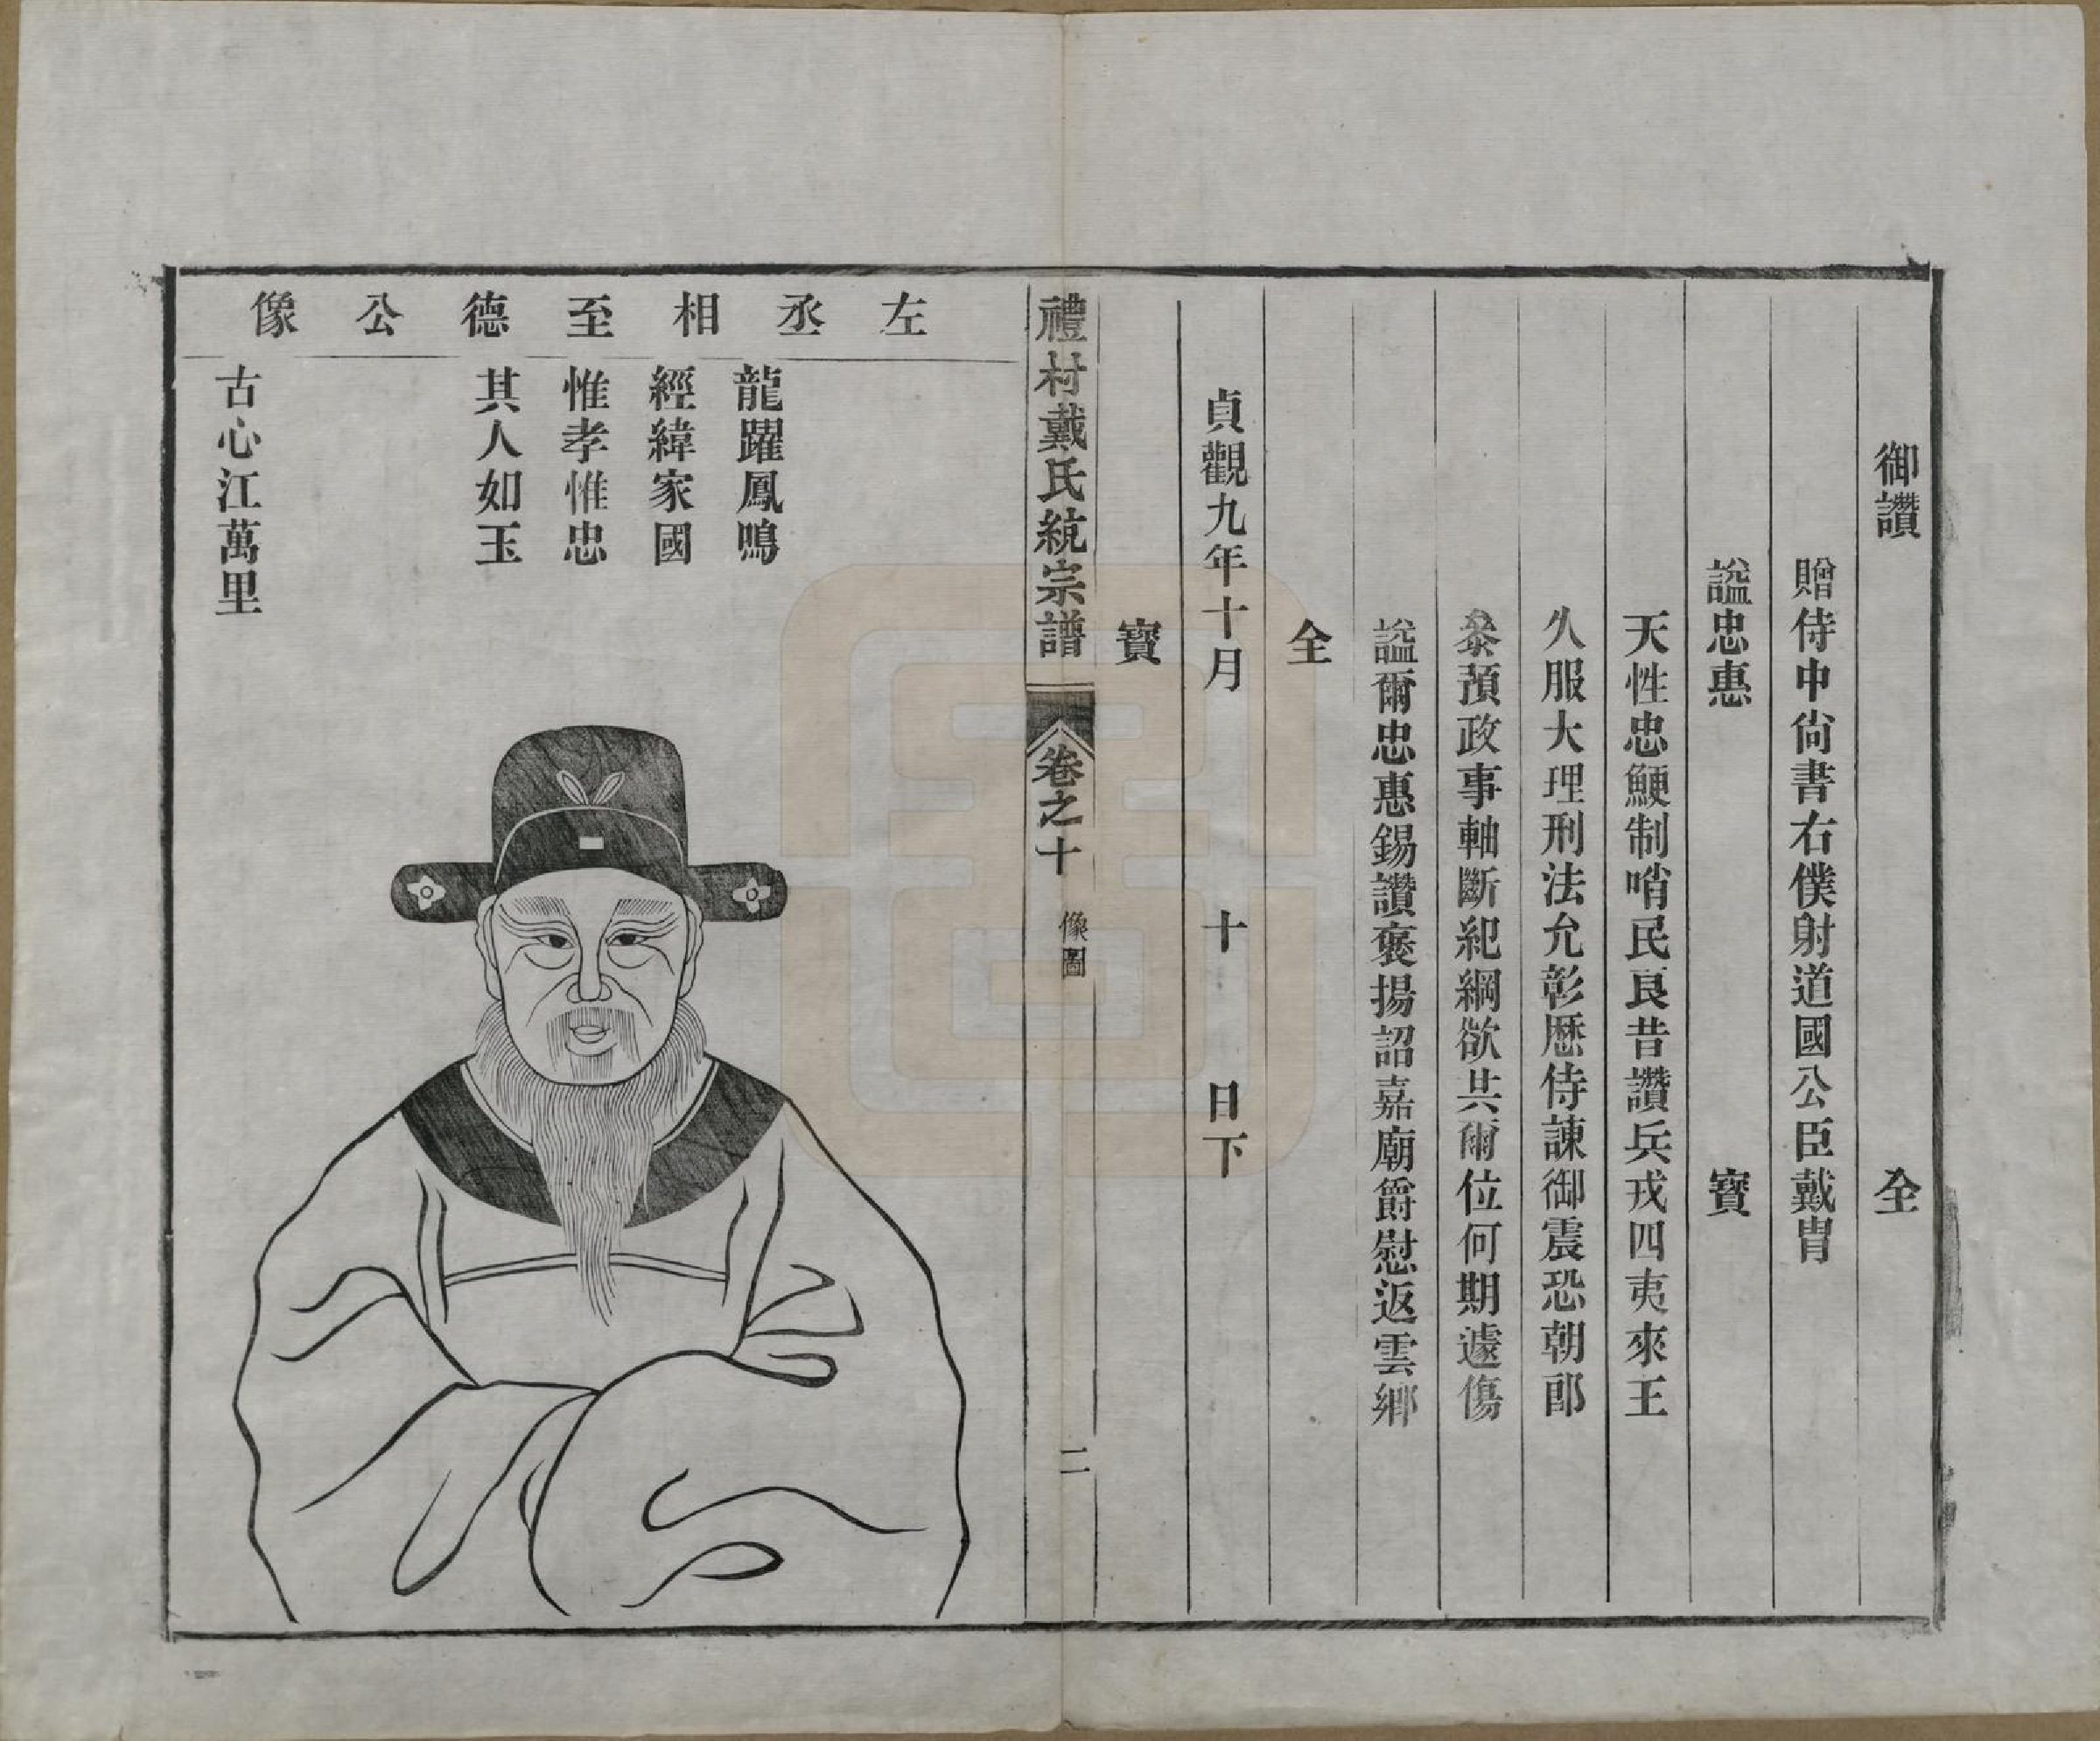 御讚　全
贈侍中尙書右僕射道國公臣戴冑
諡忠惠　寶
天性忠鯁制哨民良昔讚兵戎四夷來王
久服大理刑法允彰歷侍諫御震恐朝郎
叅預政事軸斷紀綱欲共爾位何期遽傷
諡爾忠惠錫讚褒揚詔嘉廟爵慰返雲鄉
全
貞觀九年十月　十　日下
寶
禮村戴氏統宗譜　卷之十　像圖　二
左丞相至德公像
龍躍鳳鳴
經緯家國
惟孝惟忠
其人如玉
古心江萬里